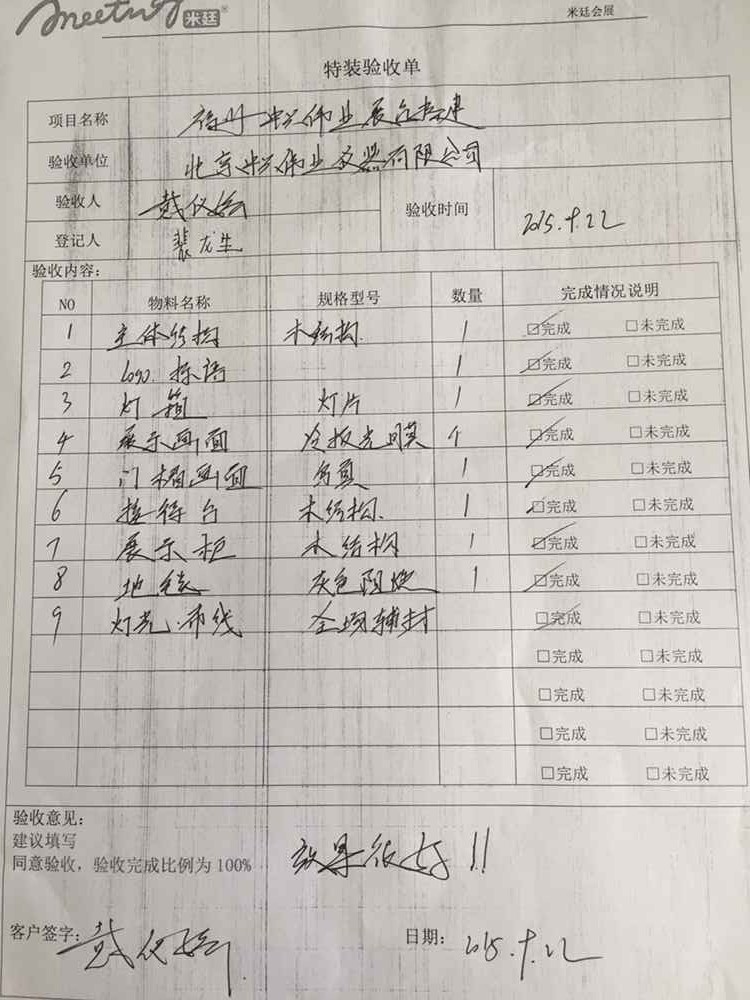 Meeting 米廷®
米廷会展
特装验收单
项目名称 徐州 伟业展台搭建
验收单位 北京 伟业 有限公司
验收人 戴仪 验收时间 2015.9.22
登记人 裴龙生
验收内容：
NO 物料名称 规格型号 数量 完成情况说明
1 主体结构 木结构. 1 ☑完成 □未完成
2 logo. 标语 1 ☑完成 □未完成
3 灯箱 灯片 1 ☑完成 □未完成
4 展示画面 冷板光膜 ☑完成 □未完成
5 门楣画面 写真 1 ☑完成 □未完成
6 接待台 木结构. 1 ☑完成 □未完成
7 展示柜 木结构 1 ☑完成 □未完成
8 地毯 灰色阻燃 1 ☑完成 □未完成
9 灯光.布线 全场 ☑完成 □未完成
□完成 □未完成
□完成 □未完成
□完成 □未完成
□完成 □未完成
验收意见：
建议填写
同意验收，验收完成比例为 100% 效果很好!!
客户签字： 戴仪 日期： 2015.9.22